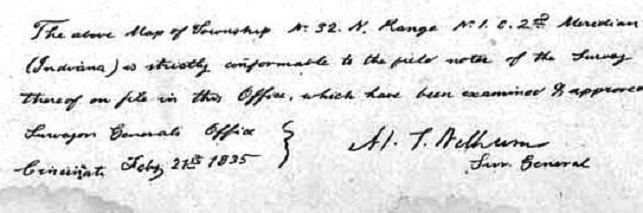 The above Map of Township No. 32. N. Range No. 1. E. 2nd Meridian
(Indiana) is strictly conformable to the field notes of the Survey
thereof on file in this Office, which have been examined & approved
Surveyor Generals Office
Cincinnati Feby 21st 1835
M. T. Williams
Surv. General